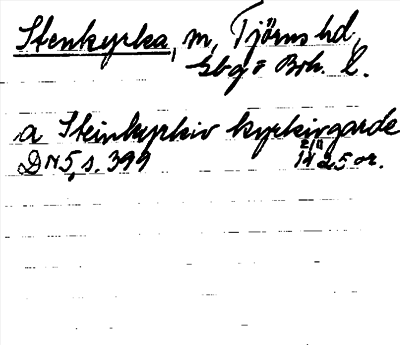 Stenkyrka, m, Tjörns hd,
Gbg o Boh. l.
a Steinkyrkiv kyrkivgarde
DN 5, s. 399 2/11 1425 or.